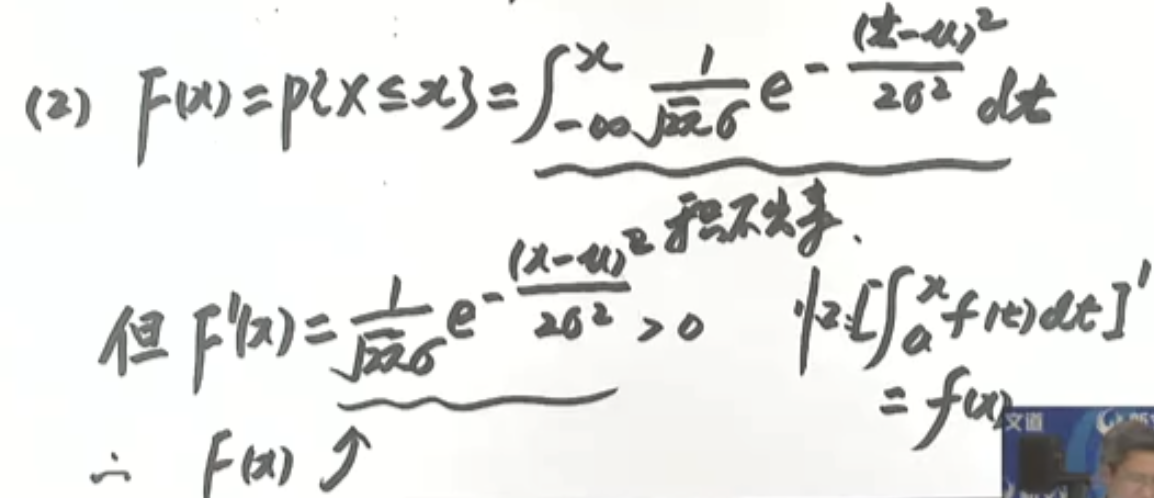 (2) F(x)=P{X≤x}=∫_{-∞}^{x} \frac{1}{\sqrt{2π}σ} e^{-\frac{(t-μ)^2}{2σ^2}} dt
积不出来.
但 F'(x)=\frac{1}{\sqrt{2π}σ} e^{-\frac{(x-μ)^2}{2σ^2}} >0
[∫_{a}^{x} f(t)dt]'
= f(x)
∴ F(x) ↑
文道